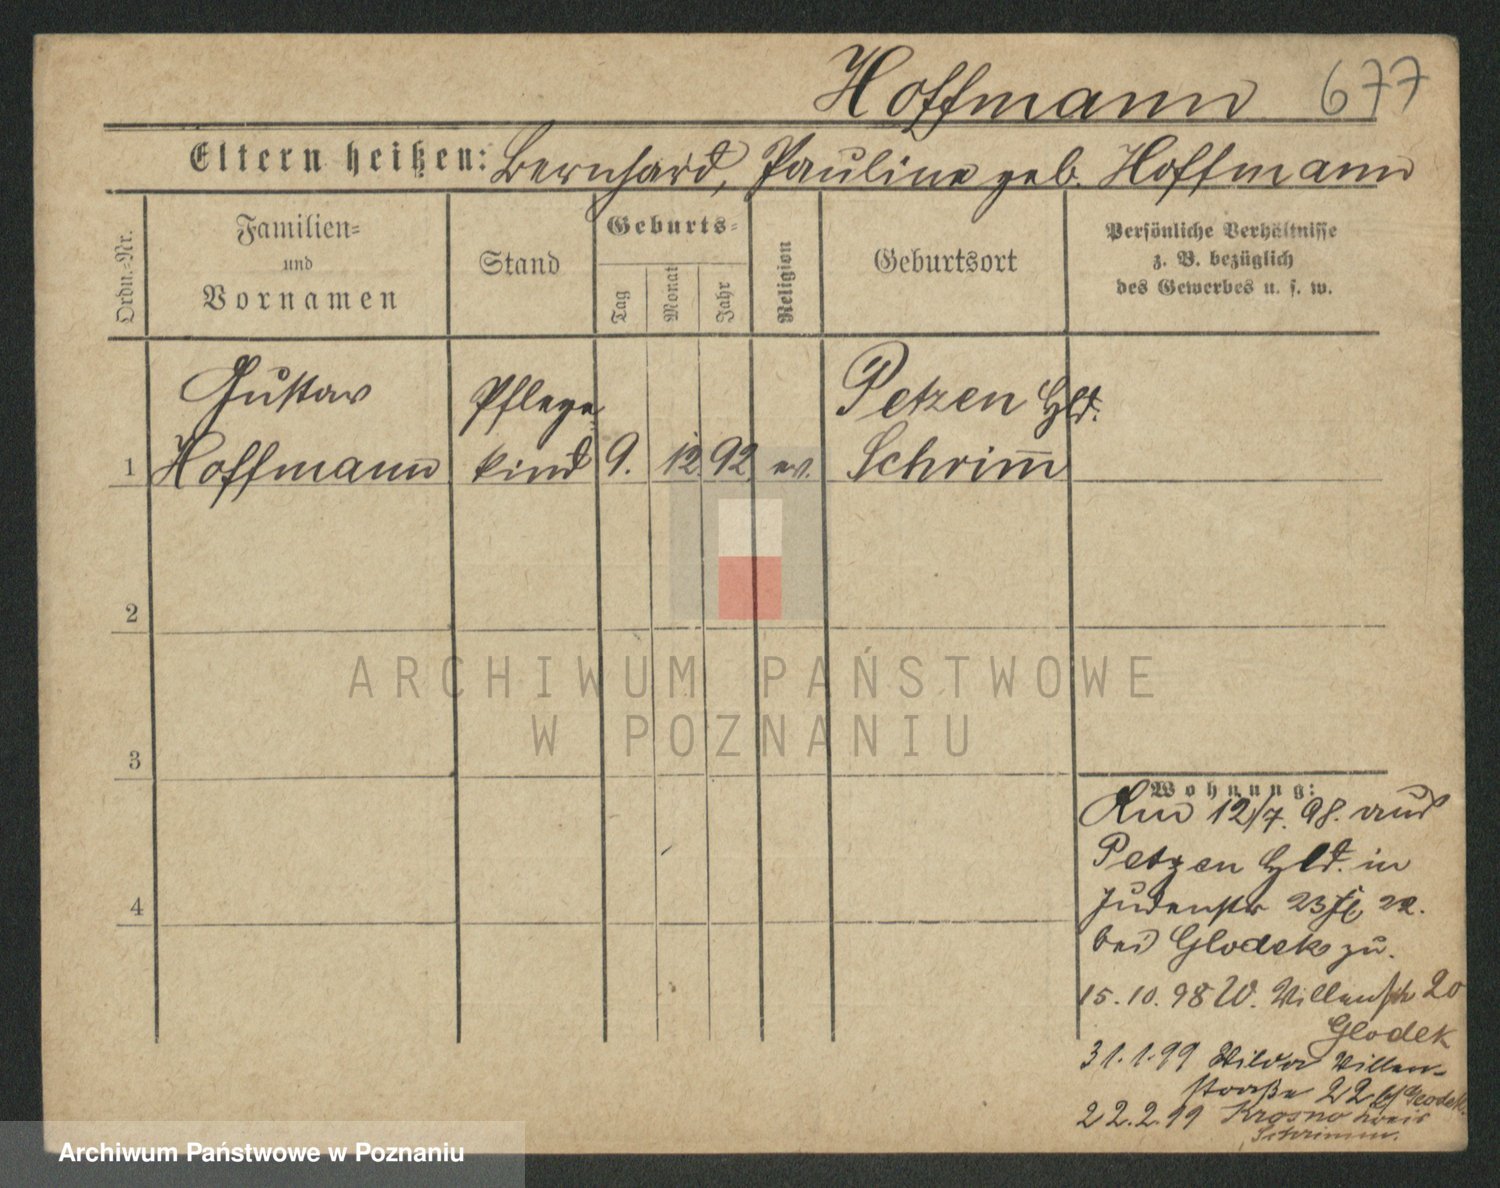 Hoffmann 677
Eltern heißen: Bernhard, Pauline geb. Hoffmann
Ordn.-Nr.
Familien-
und
Vornamen
Stand
Geburts-
Tag
Monat
Jahr
Religion
Geburtsort
Persönliche Verhältnisse
z. B. bezüglich
des Gewerbes u. s. w.
Gustav
Hoffmann
Pflege
kind
1
9. 12 92 ev.
Petzen Hld.
Schrim̅
2
3
4
ARCHIWUM PAŃSTWOWE
W POZNANIU
Wohnung:
Am 12/7. 98. aus
Petzen Hld. in
Judenstr 23
bei Glodek zu.
15.10.98 W. Villenstr 20
Glodek
31.1.99 Wilda Villen-
straße 22 Glodek
22.2.99 Krosno Kreis
Schrimm.
Archiwum Państwowe w Poznaniu